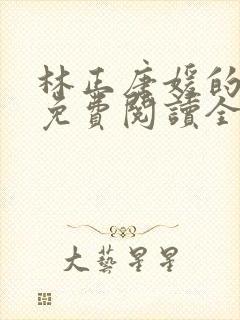 林正唐媛的
免費閱讀全
大藝星星